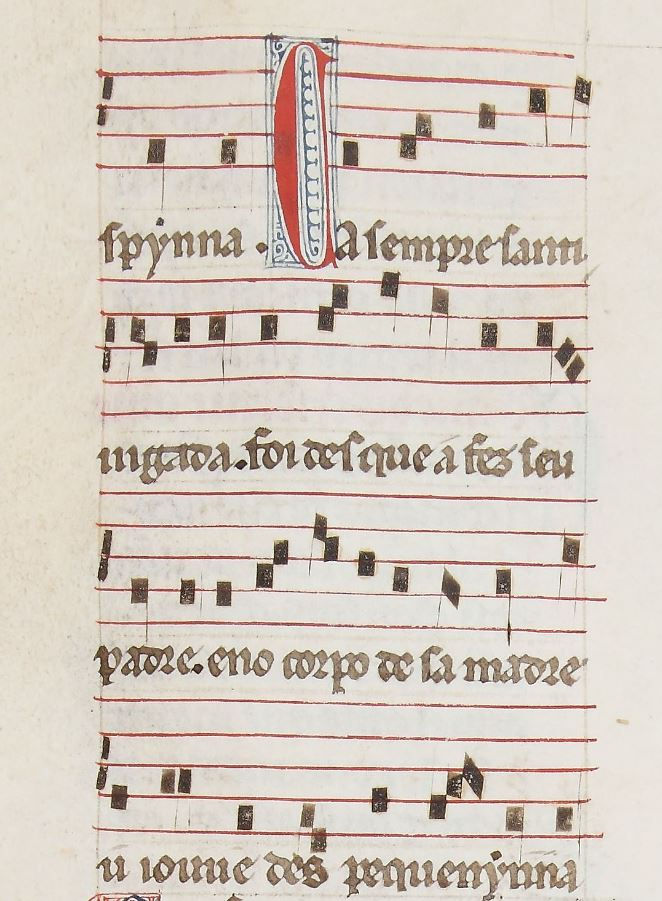 spỹnna. CA sempre santi
uigada. foi des que a fez seu
padre. eno corpo de sa madre
u iouue des pequenỹnna